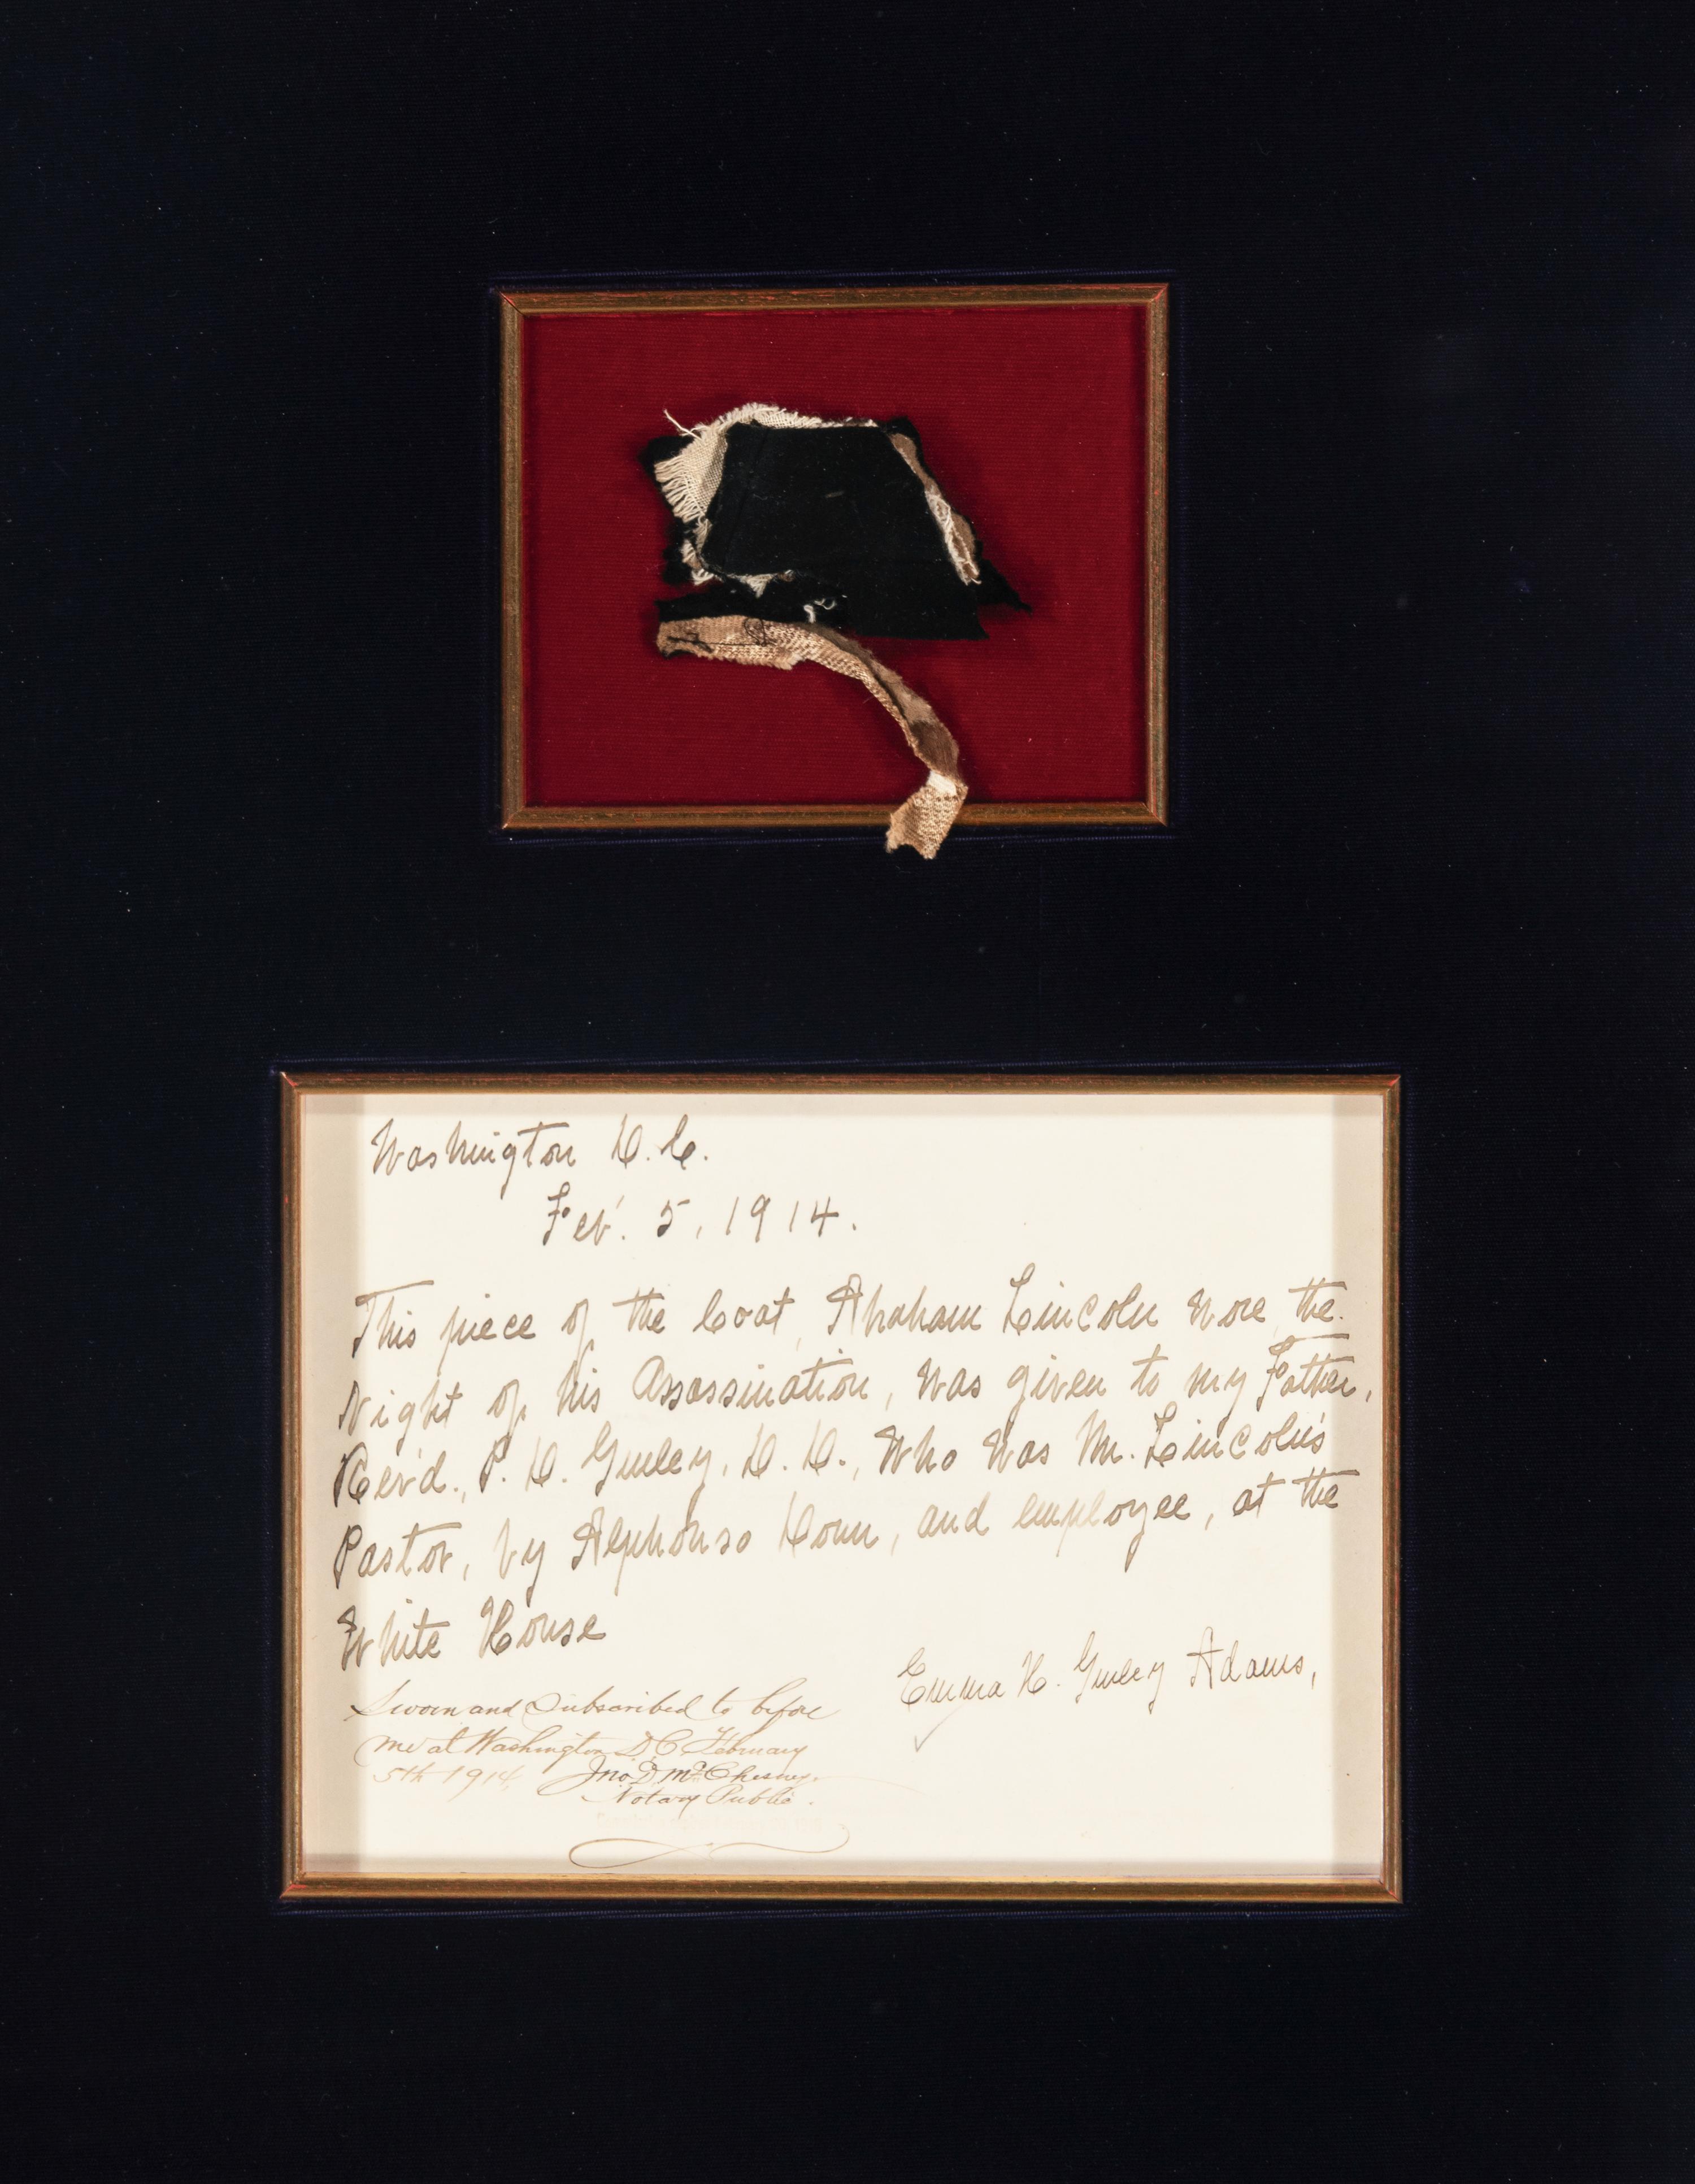 Washington D.C.
Feb. 5, 1914.
This piece of the Coat, Abraham Lincoln wore, the
Night of his Assassination, was given to my Father,
Rev'd., P. D. Gurley, D. D., Who was Mr. Lincoln's
Pastor, by Alphonso Donn, and employee, at the
White House
Emma H. Gurley Adams,
Sworn and Subscribed to before
me at Washington D.C. February
5th 1914. Jno. D. McChesney.
Notary Public.